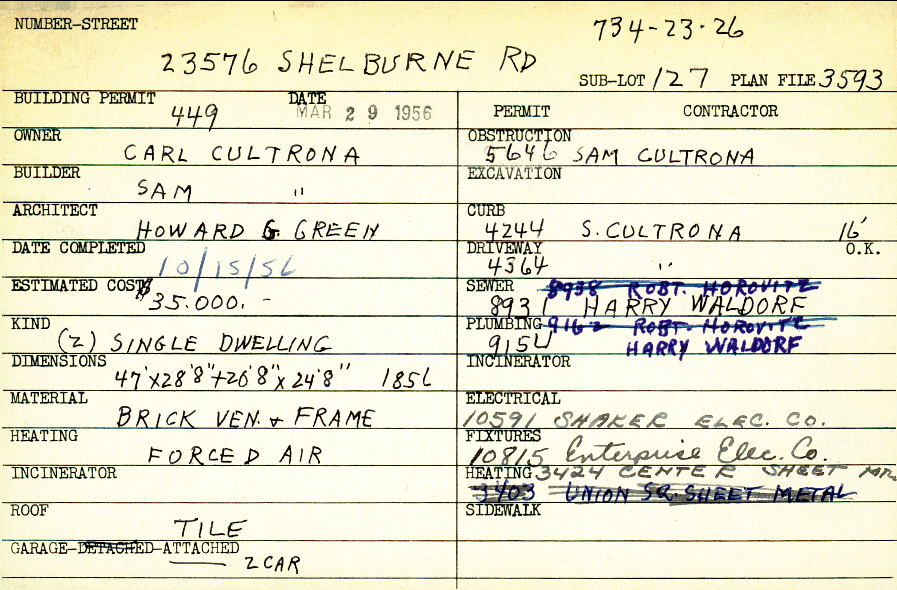 NUMBER-STREET
734-23-26
23576 SHELBURNE RD
SUB-LOT 127 PLAN FILE 3593
BUILDING PERMIT 449 DATE MAR 29 1956
PERMIT CONTRACTOR
OWNER
CARL CULTRONA
OBSTRUCTION
5646 SAM CULTRONA
BUILDER
SAM "
EXCAVATION
ARCHITECT
HOWARD G. GREEN
CURB
4244 S. CULTRONA 16'
DATE COMPLETED
10/15/56
DRIVEWAY O.K.
4364 "
ESTIMATED COST
$35.000.-
SEWER 8938 ROBT. HOROVITZ
8931 HARRY WALDORF
KIND
(2) SINGLE DWELLING
PLUMBING 9162 ROBT. HOROVITZ
9154 HARRY WALDORF
DIMENSIONS
47'x28'8"+26'8"x24'8" 1856
INCINERATOR
MATERIAL
BRICK VEN. & FRAME
ELECTRICAL
10591 SHAKER ELEC. CO.
HEATING
FORCED AIR
FIXTURES
10815 Enterprise Elec. Co.
INCINERATOR
HEATING 3424 CENTER SHEET
3403 UNION SQ. SHEET METAL
ROOF
TILE
SIDEWALK
GARAGE-DETACHED-ATTACHED
2 CAR